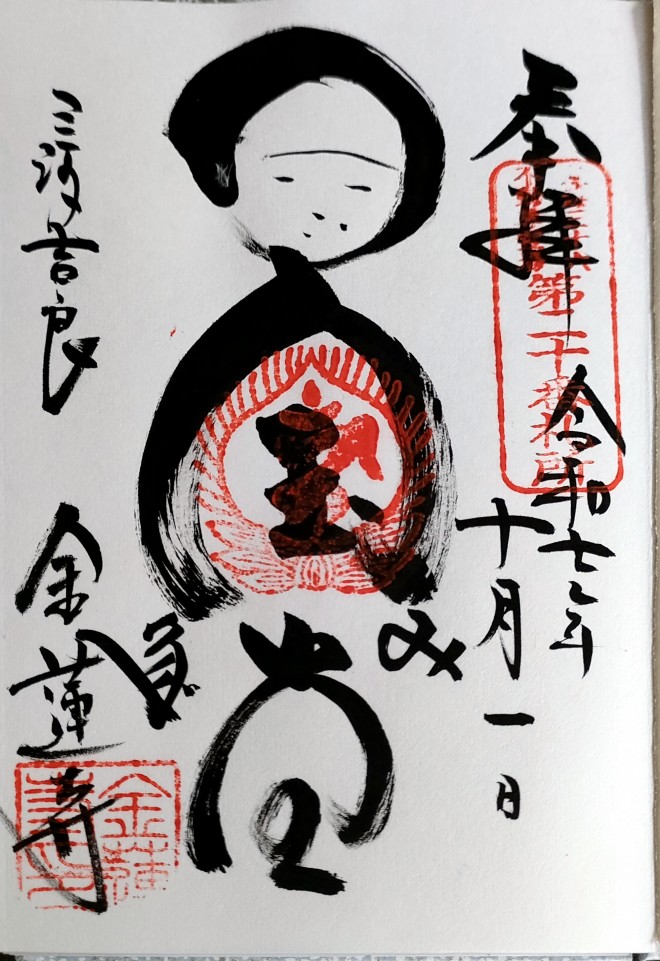 奉拝
第二十番札所
令和七年
十月一日
宝
堂
三河吉良
金蓮寺
金蓮寺